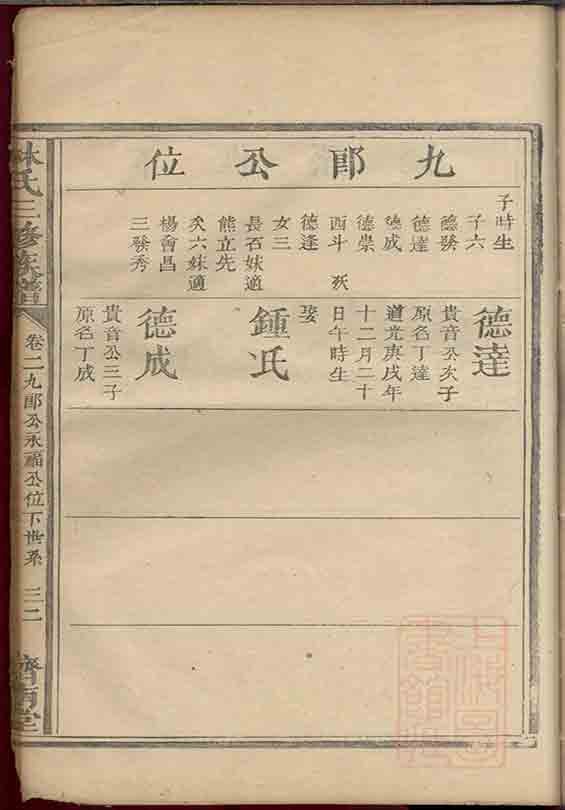 九郎公位
子時生
子六
德發
德達
德成
德崇
酉斗
德逢
女三
長石妹適
熊立先
矣六妹適
楊會昌
三發秀
德達
貴音公次子
原名丁達
道光庚戌年
十二月二十
日午時生
娶
鍾氏
德成
貴音公三子
原名丁成
林氏三修族譜
卷二九郎公永福公位下世系
三二
濟南堂